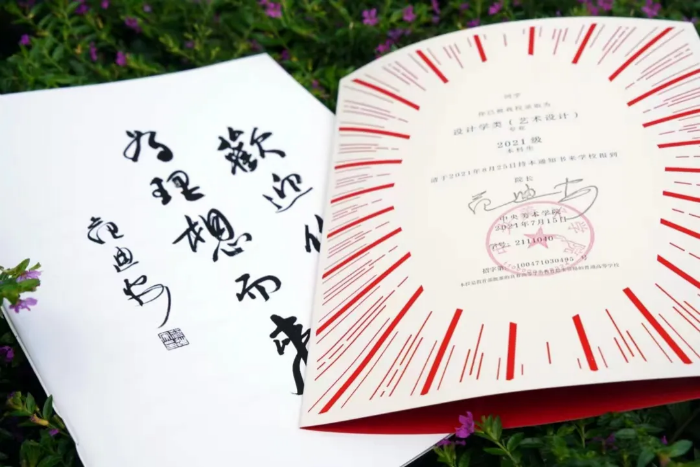 歡迎
为理想而来
范迪安
同学
你已被我院录取为
设计学类(艺术设计)
专业
2021 级
本科生
请于2021年8月25日持本通知书来学校报到
院长
范迪安
中央美术学院
2021年7月15日
学号:2111040
100471030495 号